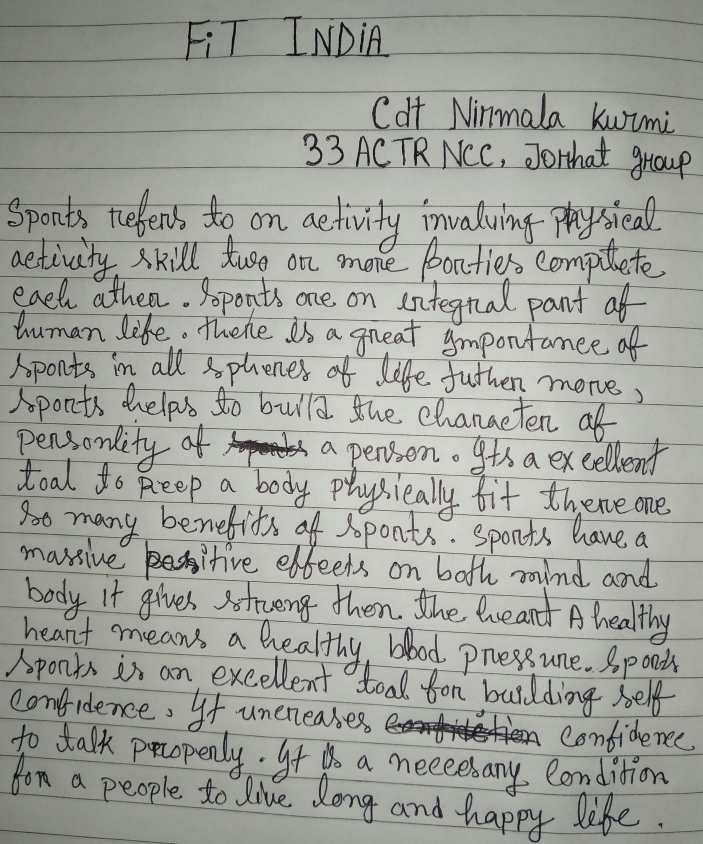 FiT INDiA
Cdt Nirmala Kurmi
33 ACTR NCC, Jorhat group
Sports refers to on activity involving physical
activity skill two or more parties compitete
each ather. Sports are on integral part of
human life. there is a great ymportance of
sports in all spheres of life futher more,
sports helps to build the character of
personlity of a person. Its a excellent
toal to keep a body physically fit there are
so many benefits of sports. Sports have a
massive possitive effects on both mind and
body it gives strueng then the heart A healthy
heart means a healthy blood pressure. Sports
sports is an excellent toal for building self
confidence, It uncreases confidence
to talk properly. It is a neccesary condition
for a people to live long and happy life.